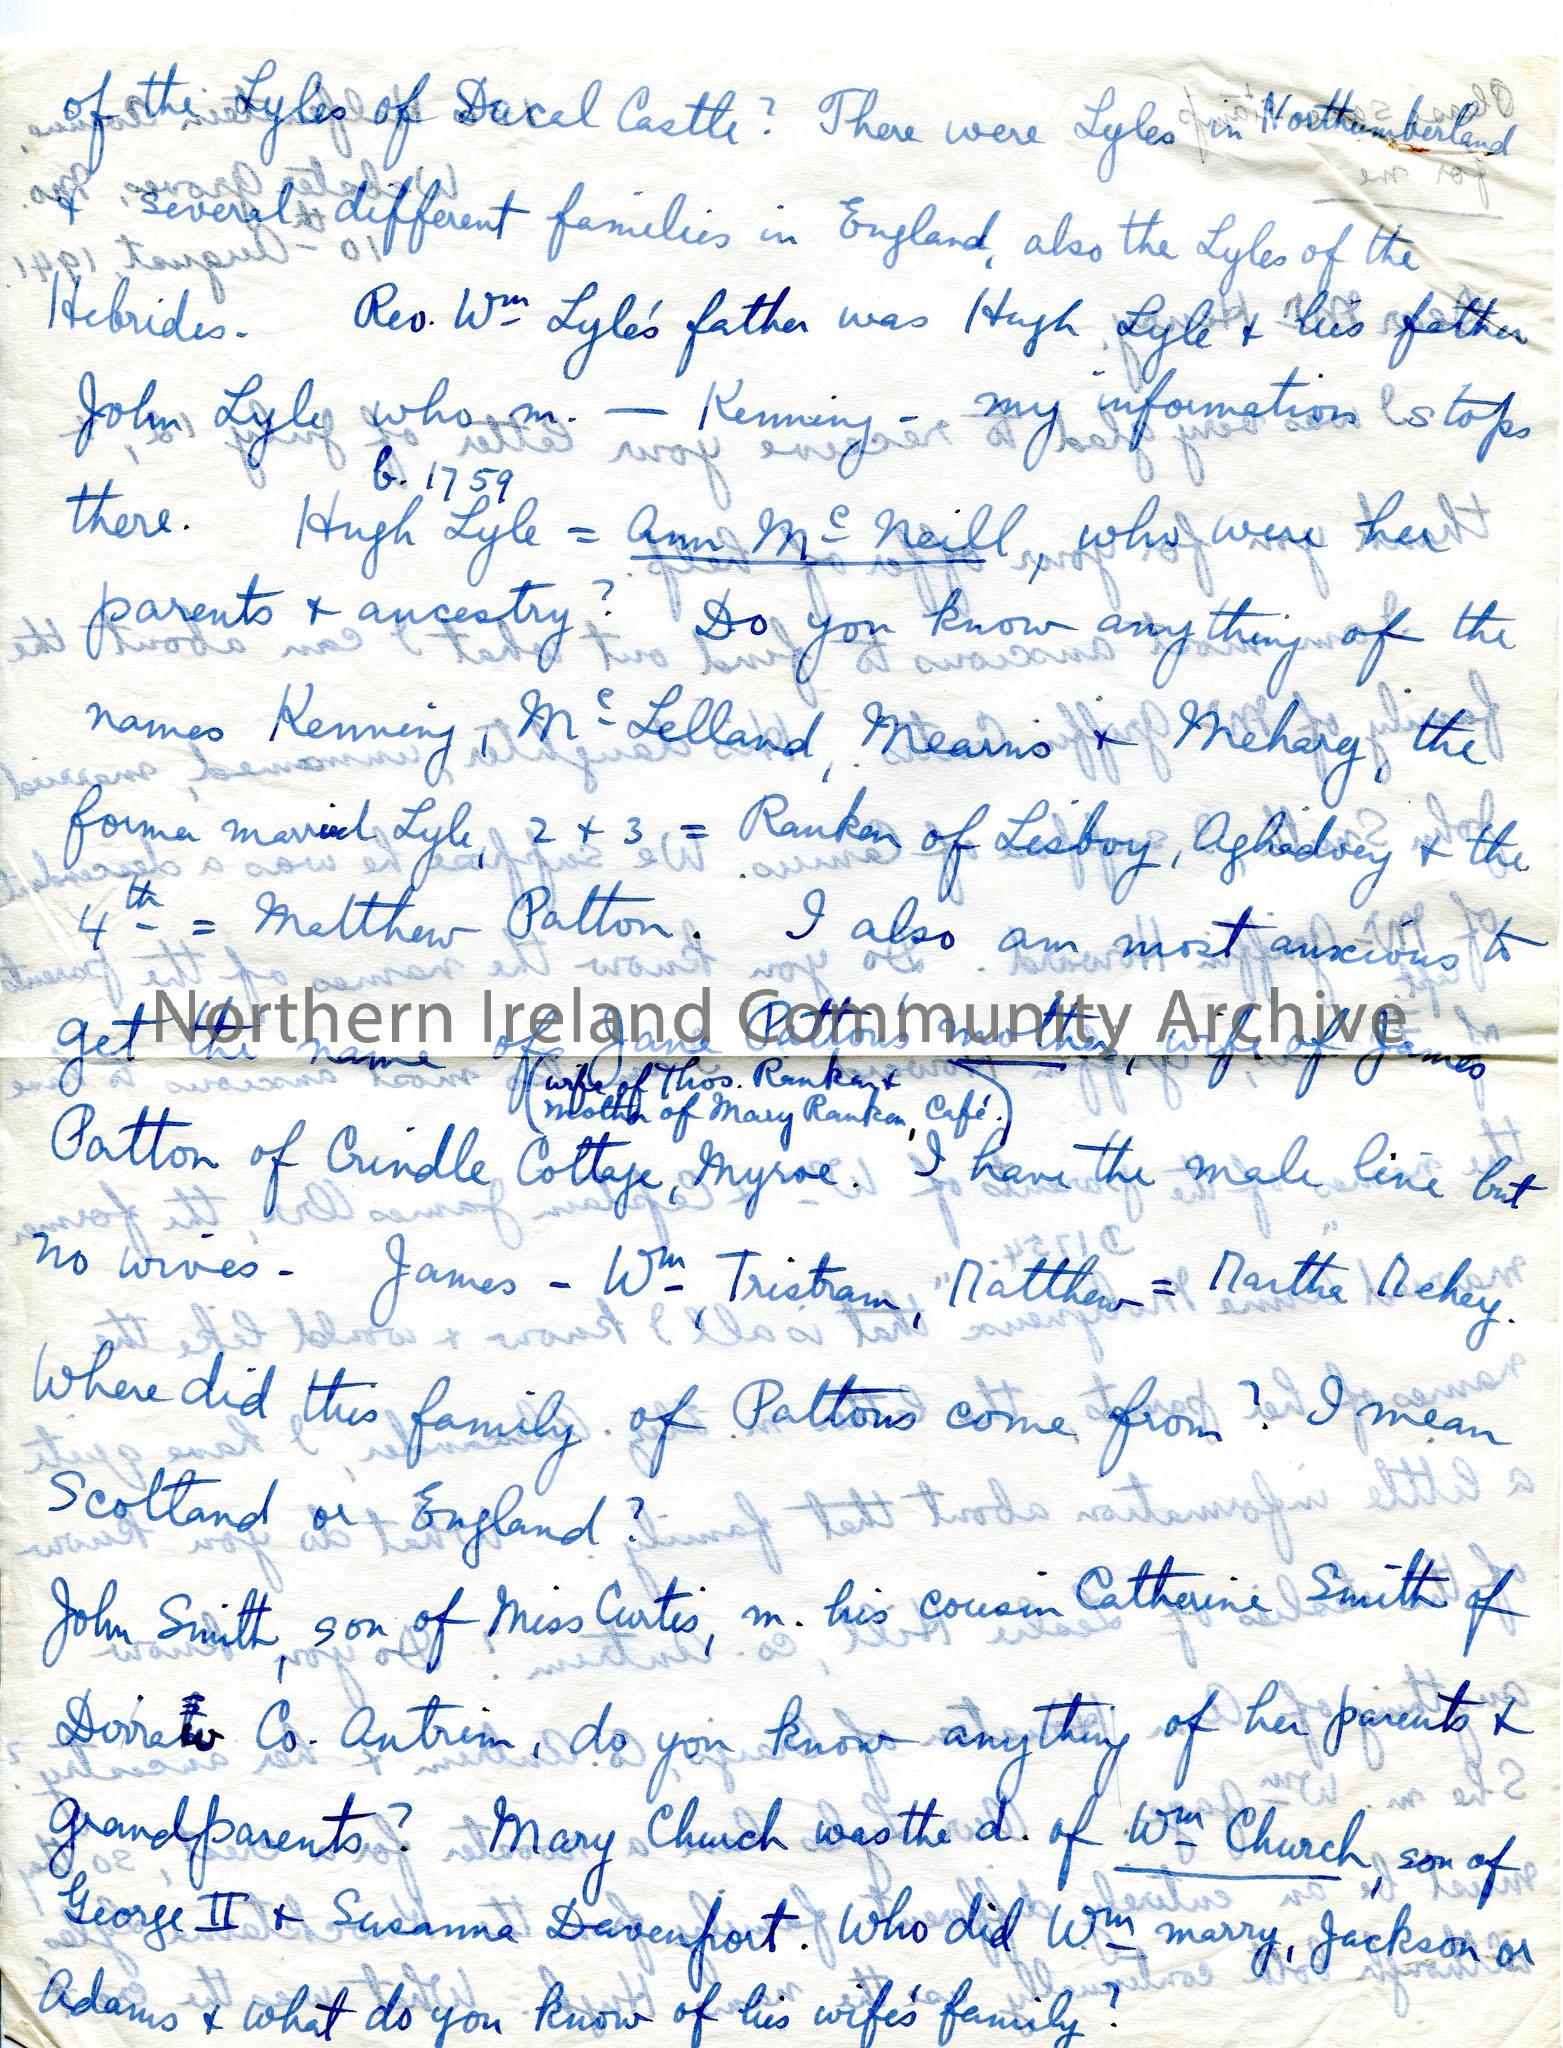 of the Lyles of Ducal Castle? There were Lyles in Northumberland
& several different families in England, also the Lyles of the
Hebrides. Rev. Wm Lyle's father was Hugh Lyle & his father
John Lyle who m. — Kenning - my information stops
b. 1759
there. Hugh Lyle = Ann Mc Neill, who were her
parents & ancestry? Do you know anything of the
names Kenning, Mc Lelland, Mearns & Meharg, the
former married Lyle, 2 & 3, = Ranken of Lisboy, Aghadoey & the
4th = Matthew Patton. I also am most anxious to
get the name of Jane Patton's mother, wife of James
Northern Ireland Community Archive
(wife of Thos. Ranken &
mother of Mary Ranken, Café.)
Patton of Crindle Cottage, Myroe. I have the male line but
no wives - James - Wm, Tristram, Matthew = Martha Mehey.
Where did this family of Pattons come from? I mean
Scotland or England?
John Smith, son of Miss Curtis, m. his cousin Catherine Smith of
Co. Antrim, do you know anything of her parents &
grandparents? Mary Church was the d. of Wm Church, son of
George II & Susanna Davenport. Who did Wm marry, Jackson or
Adams & what do you know of his wife's family?